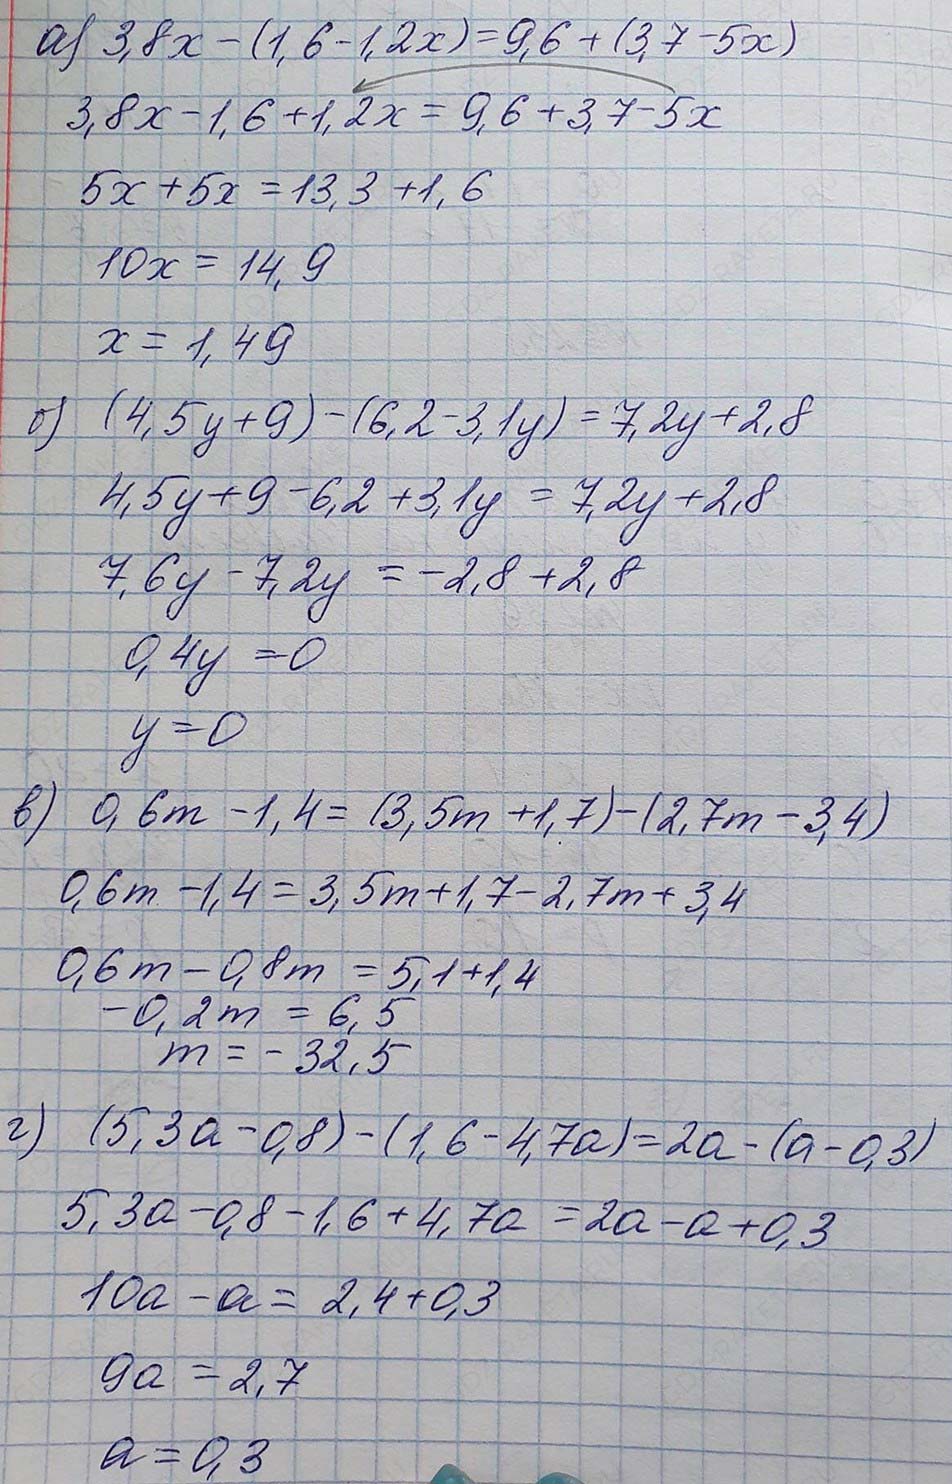 а) 3,8x - (1,6 - 1,2x) = 9,6 + (3,7 - 5x)
3,8x - 1,6 + 1,2x = 9,6 + 3,7 - 5x
5x + 5x = 13,3 + 1,6
10x = 14,9
x = 1,49
б) (4,5y + 9) - (6,2 - 3,1y) = 7,2y + 2,8
4,5y + 9 - 6,2 + 3,1y = 7,2y + 2,8
7,6y - 7,2y = -2,8 + 2,8
0,4y = 0
y = 0
в) 0,6m - 1,4 = (3,5m + 1,7) - (2,7m - 3,4)
0,6m - 1,4 = 3,5m + 1,7 - 2,7m + 3,4
0,6m - 0,8m = 5,1 + 1,4
-0,2m = 6,5
m = -32,5
г) (5,3a - 0,8) - (1,6 - 4,7a) = 2a - (a - 0,3)
5,3a - 0,8 - 1,6 + 4,7a = 2a - a + 0,3
10a - a = 2,4 + 0,3
9a = 2,7
a = 0,3